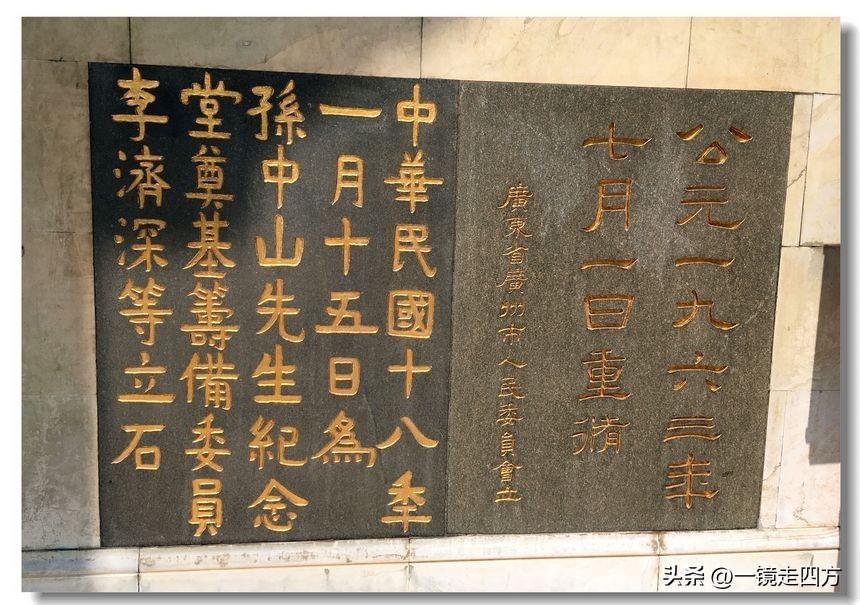 公元一九六三年
七月一日重脩
廣東省廣州市人民委員會立
中華民國十八秊
一月十五日爲
孫中山先生紀念
堂奠基籌備委員
李濟深等立石
头条 @一镜走四方